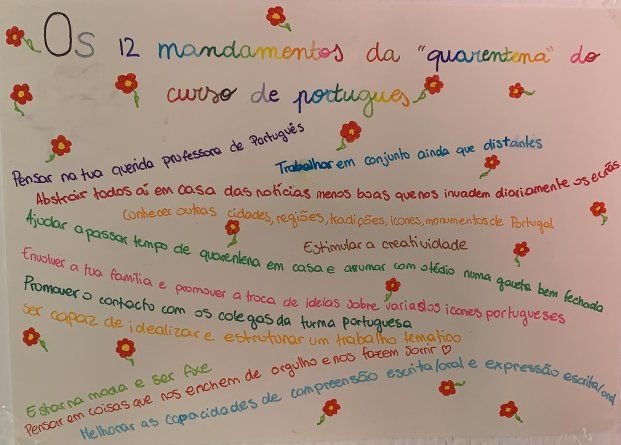 Os 12 mandamentos da "quarentena" do
curso de portugues
Pensar na tua querida professora de Português
Trabalhar em conjunto ainda que distantes
Abstrair todos aí em casa das notícias menos boas que nos invadem diariamente os ecrãs
Conhecer outras cidades, regiões, tradições, ícones, monumentos de Portugal
Ajudar a passar tempo de quarentena em casa e arrumar com o tédio numa gaveta bem fechada
Estimular a creatividade
Envolver a tua família e promover a troca de ideias sobre variados icones portugueses
Promover o contacto com os colegas da turma portuguesa
Ser capaz de idealizar e estruturar um trabalho temático
Estar na moda e ser fixe
Pensar em coisas que nos enchem de orgulho e nos fazem sorrir ♡
Melhorar as capacidades de compreensão escrita/oral e expressão escrita/oral